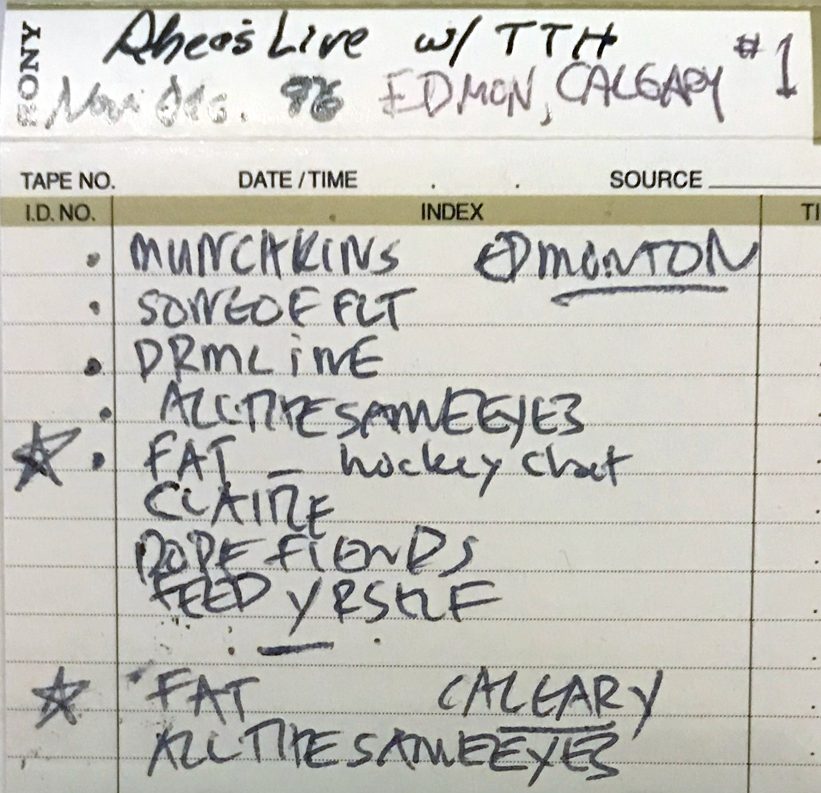 SONY
Rheos Live w/ TTH #1
Nov. Dec. 96 EDMON, CALGARY
TAPE NO. DATE/TIME SOURCE
I.D. NO. INDEX TI
MUNCHKINS EDMONTON
SONGOF FLT
DRMLiNE
ALLTHESAMEEYES
FAT – hockey chat
CLAIRE
DOPE FIENDS
FEED YRSELF
FAT CALGARY
ALLTHESAMEEYES